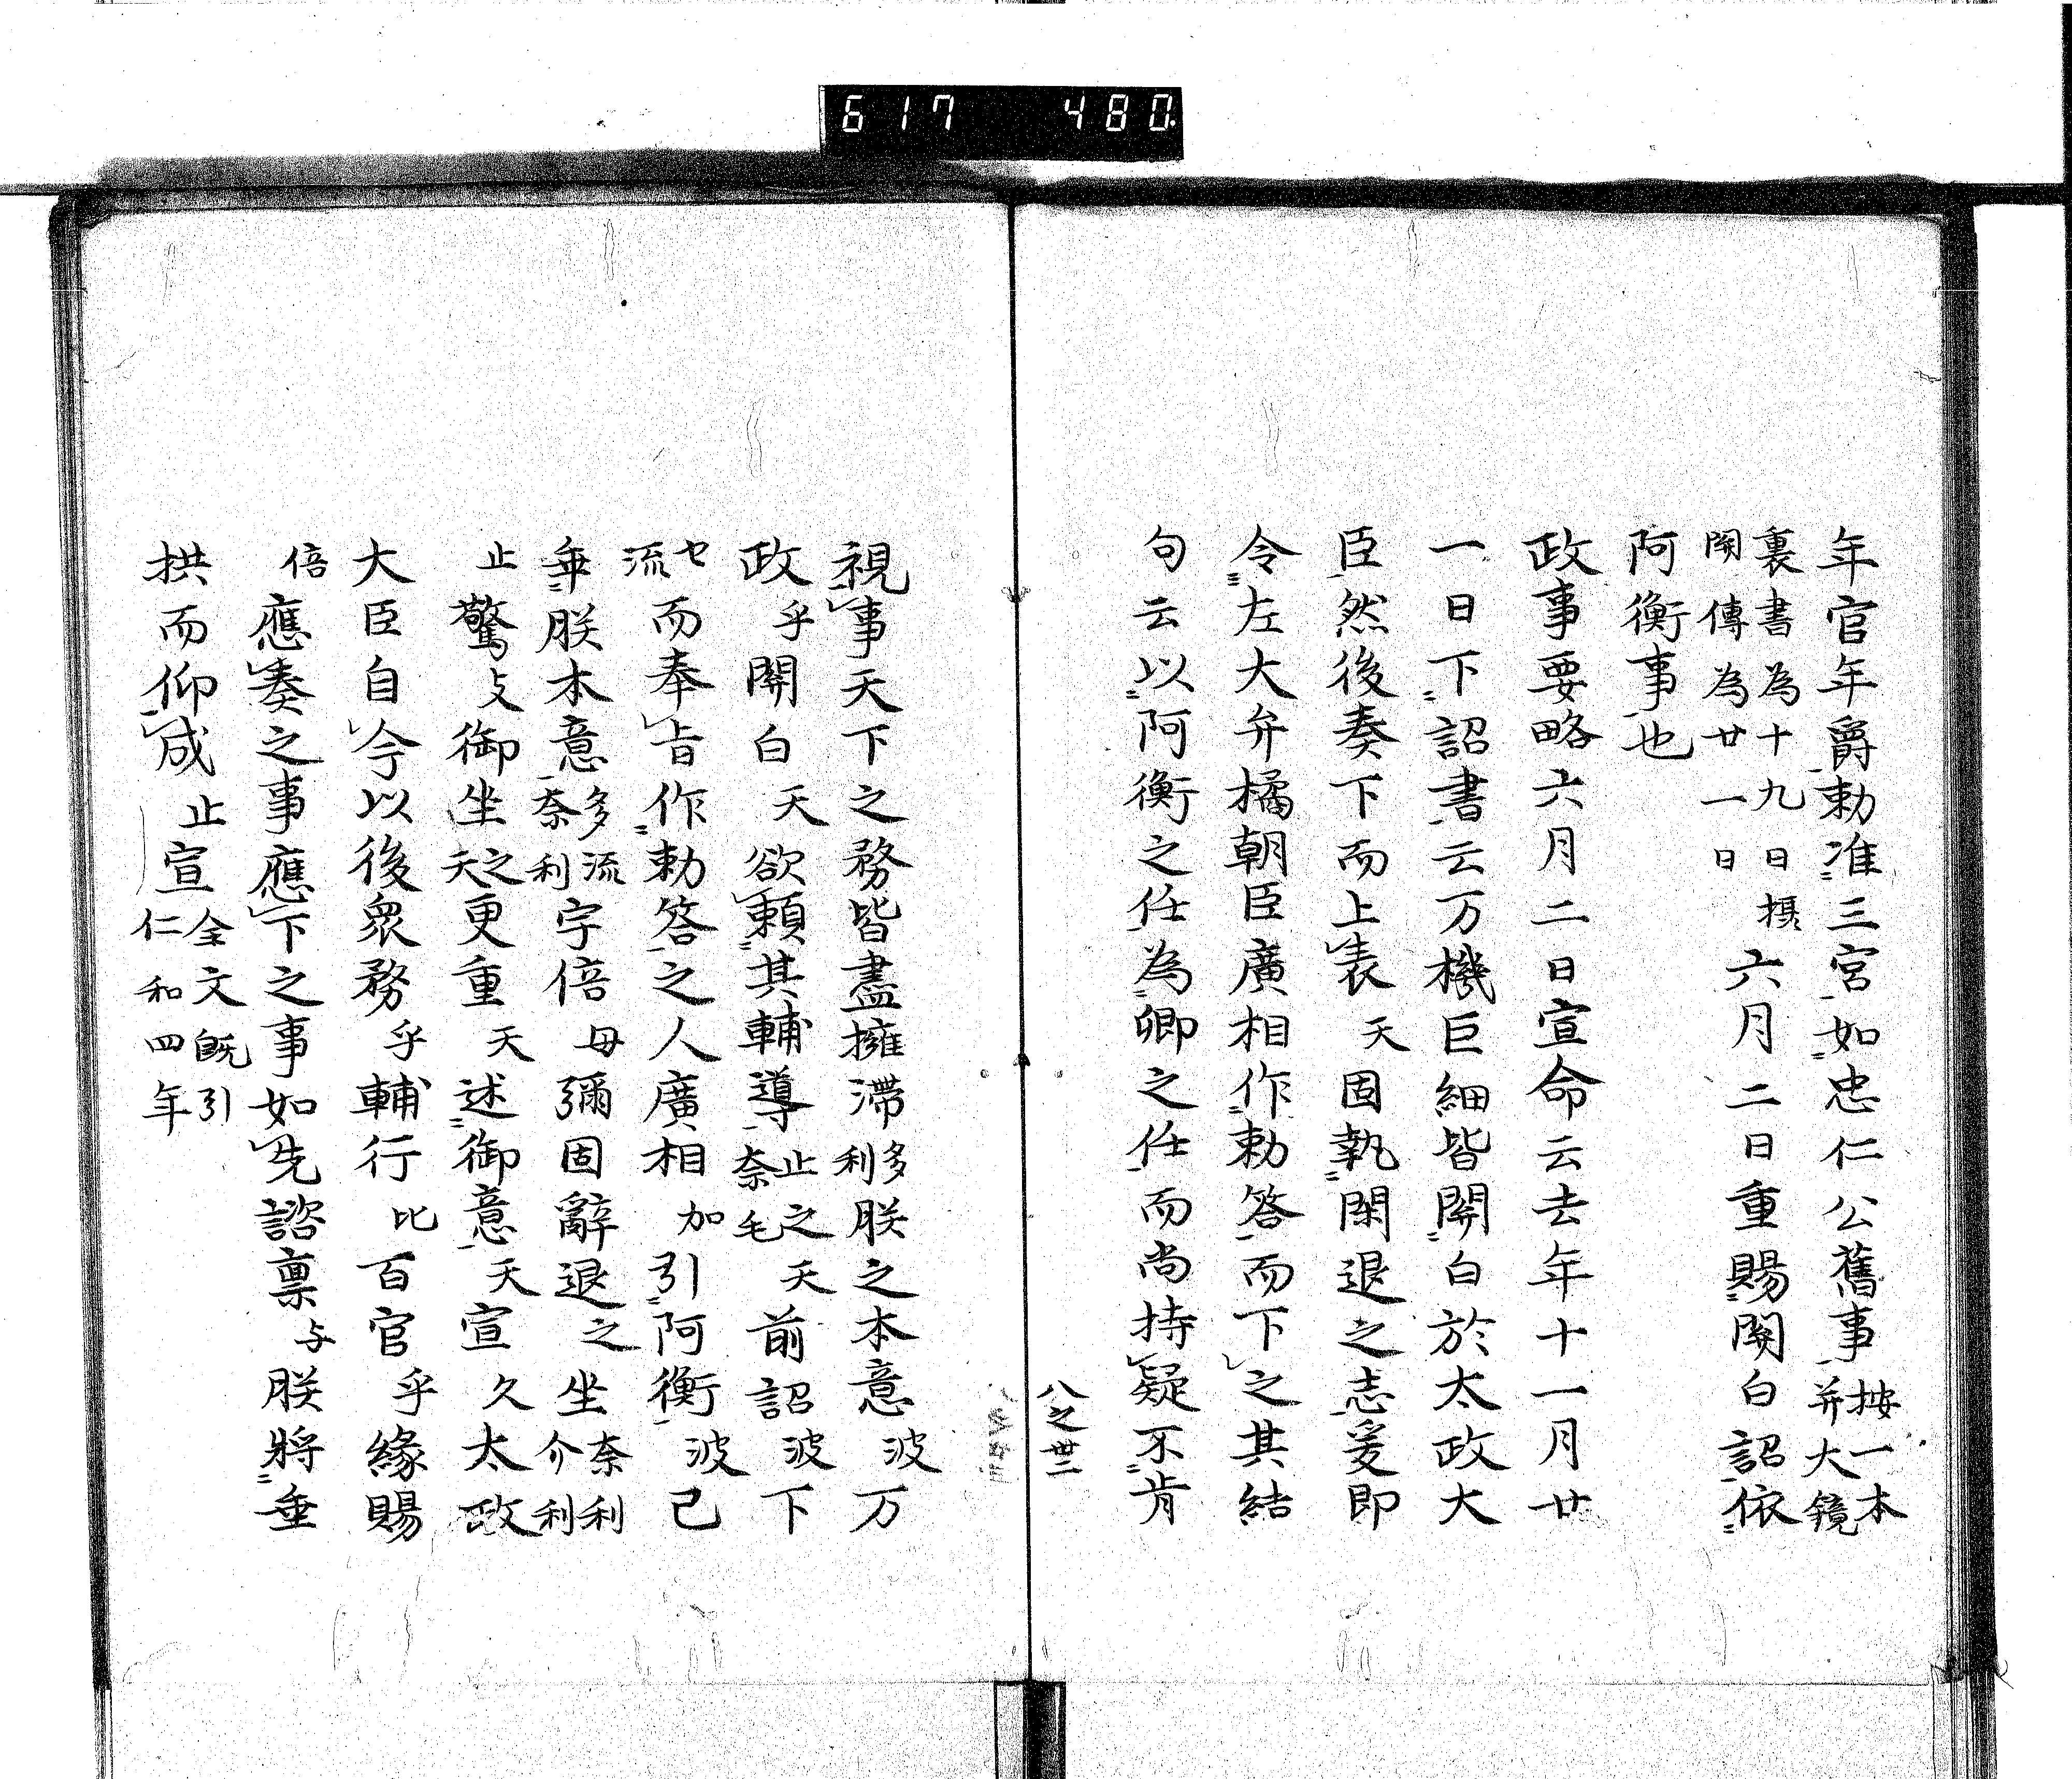 617 480
年官年爵勅准三宮如忠仁公舊事按一本并大鏡
裏書為十九日摂関傳為廿一日六月二日重賜関白詔依
阿衡事也
政事要略六月二日宣命云去年十一月廿
一日下詔書云万機巨細皆関白於太政大
臣然後奏下而上表天固執閑退之志爰即
令左大弁橘朝臣廣相作勅答而下之其結
句云以阿衡之任為卿之任而尚持疑不肯
八之卅二
視事天下之務皆盡擁滯多利朕之本意波万
政乎関白天欲頼其輔導止之奈毛天前詔波下
セ流而奉旨作勅答之人廣相加引阿衡波已
乖朕本意多流奈利宇倍毋彌固辭退之坐奈利介利
止驚支御坐之天更重天述御意天宣久太政
大臣自今以後衆務乎輔行比百官乎緣賜
倍應奏之事應下之事如先諮稟与朕將垂
拱而仰成止宣全文既引仁和四年